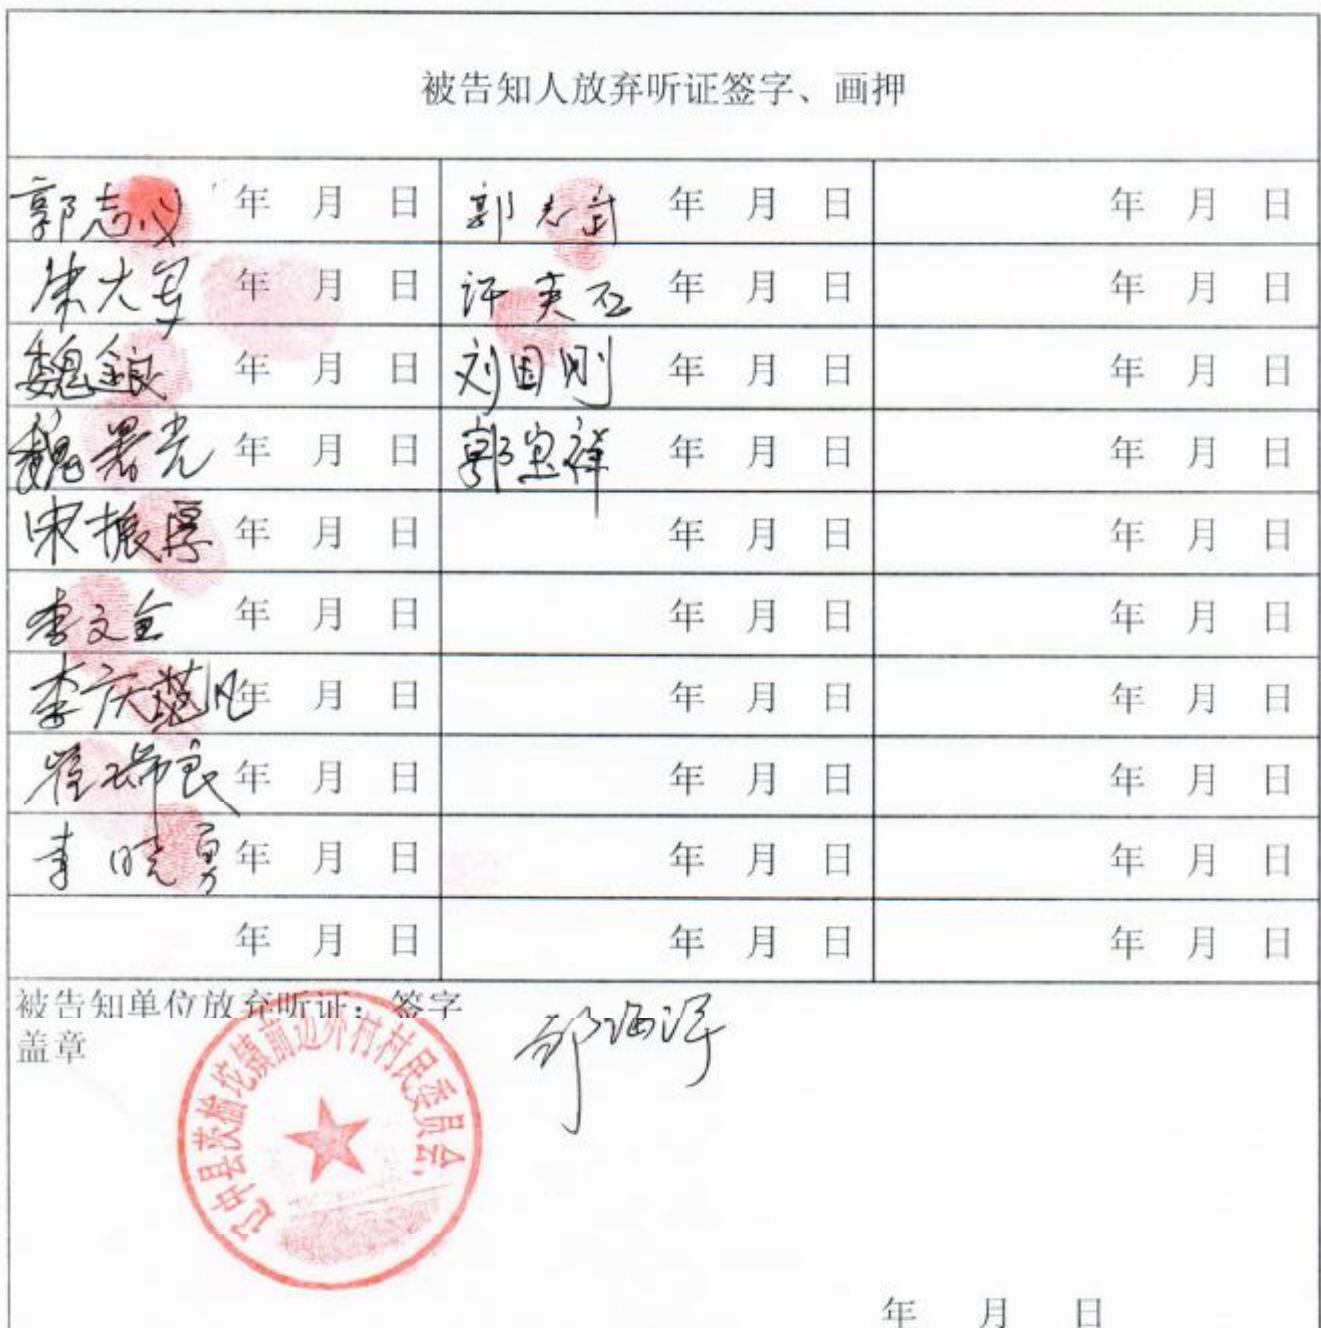 被告知人放弃听证签字、画押
郭志义 年 月 日 郭志武 年 月 日 年 月 日
年 月 日 许 年 月 日 年 月 日
魏银 年 月 日 刘国刚 年 月 日 年 月 日
魏署光 年 月 日 郭宝祥 年 月 日 年 月 日
宋振厚 年 月 日 年 月 日 年 月 日
李文全 年 月 日 年 月 日 年 月 日
李庆 凡 年 月 日 年 月 日 年 月 日
崔瑞良 年 月 日 年 月 日 年 月 日
李晓勇 年 月 日 年 月 日 年 月 日
年 月 日 年 月 日 年 月 日
被告知单位放弃听证：签字
盖章
辽中县茨榆坨镇前边外村村民委员会
年 月 日